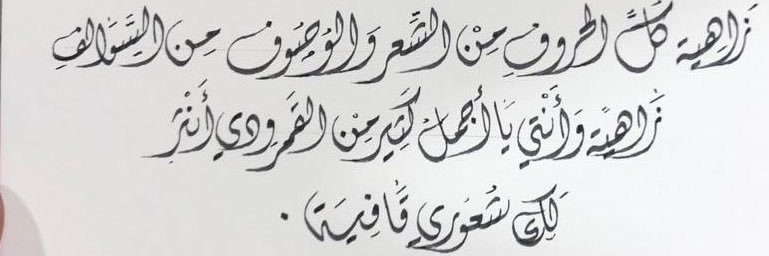 زَاهِية كَلّ الحروفِ مِنْ الشَّعر وَالوَصُوف مِن السَّوَالفِ
زَاهيَة وَأَنْتِي يَا أجمل كَثِير مِن القَمر ودي أَنْثر
لَكِ شُعُوري قَافِيَة .